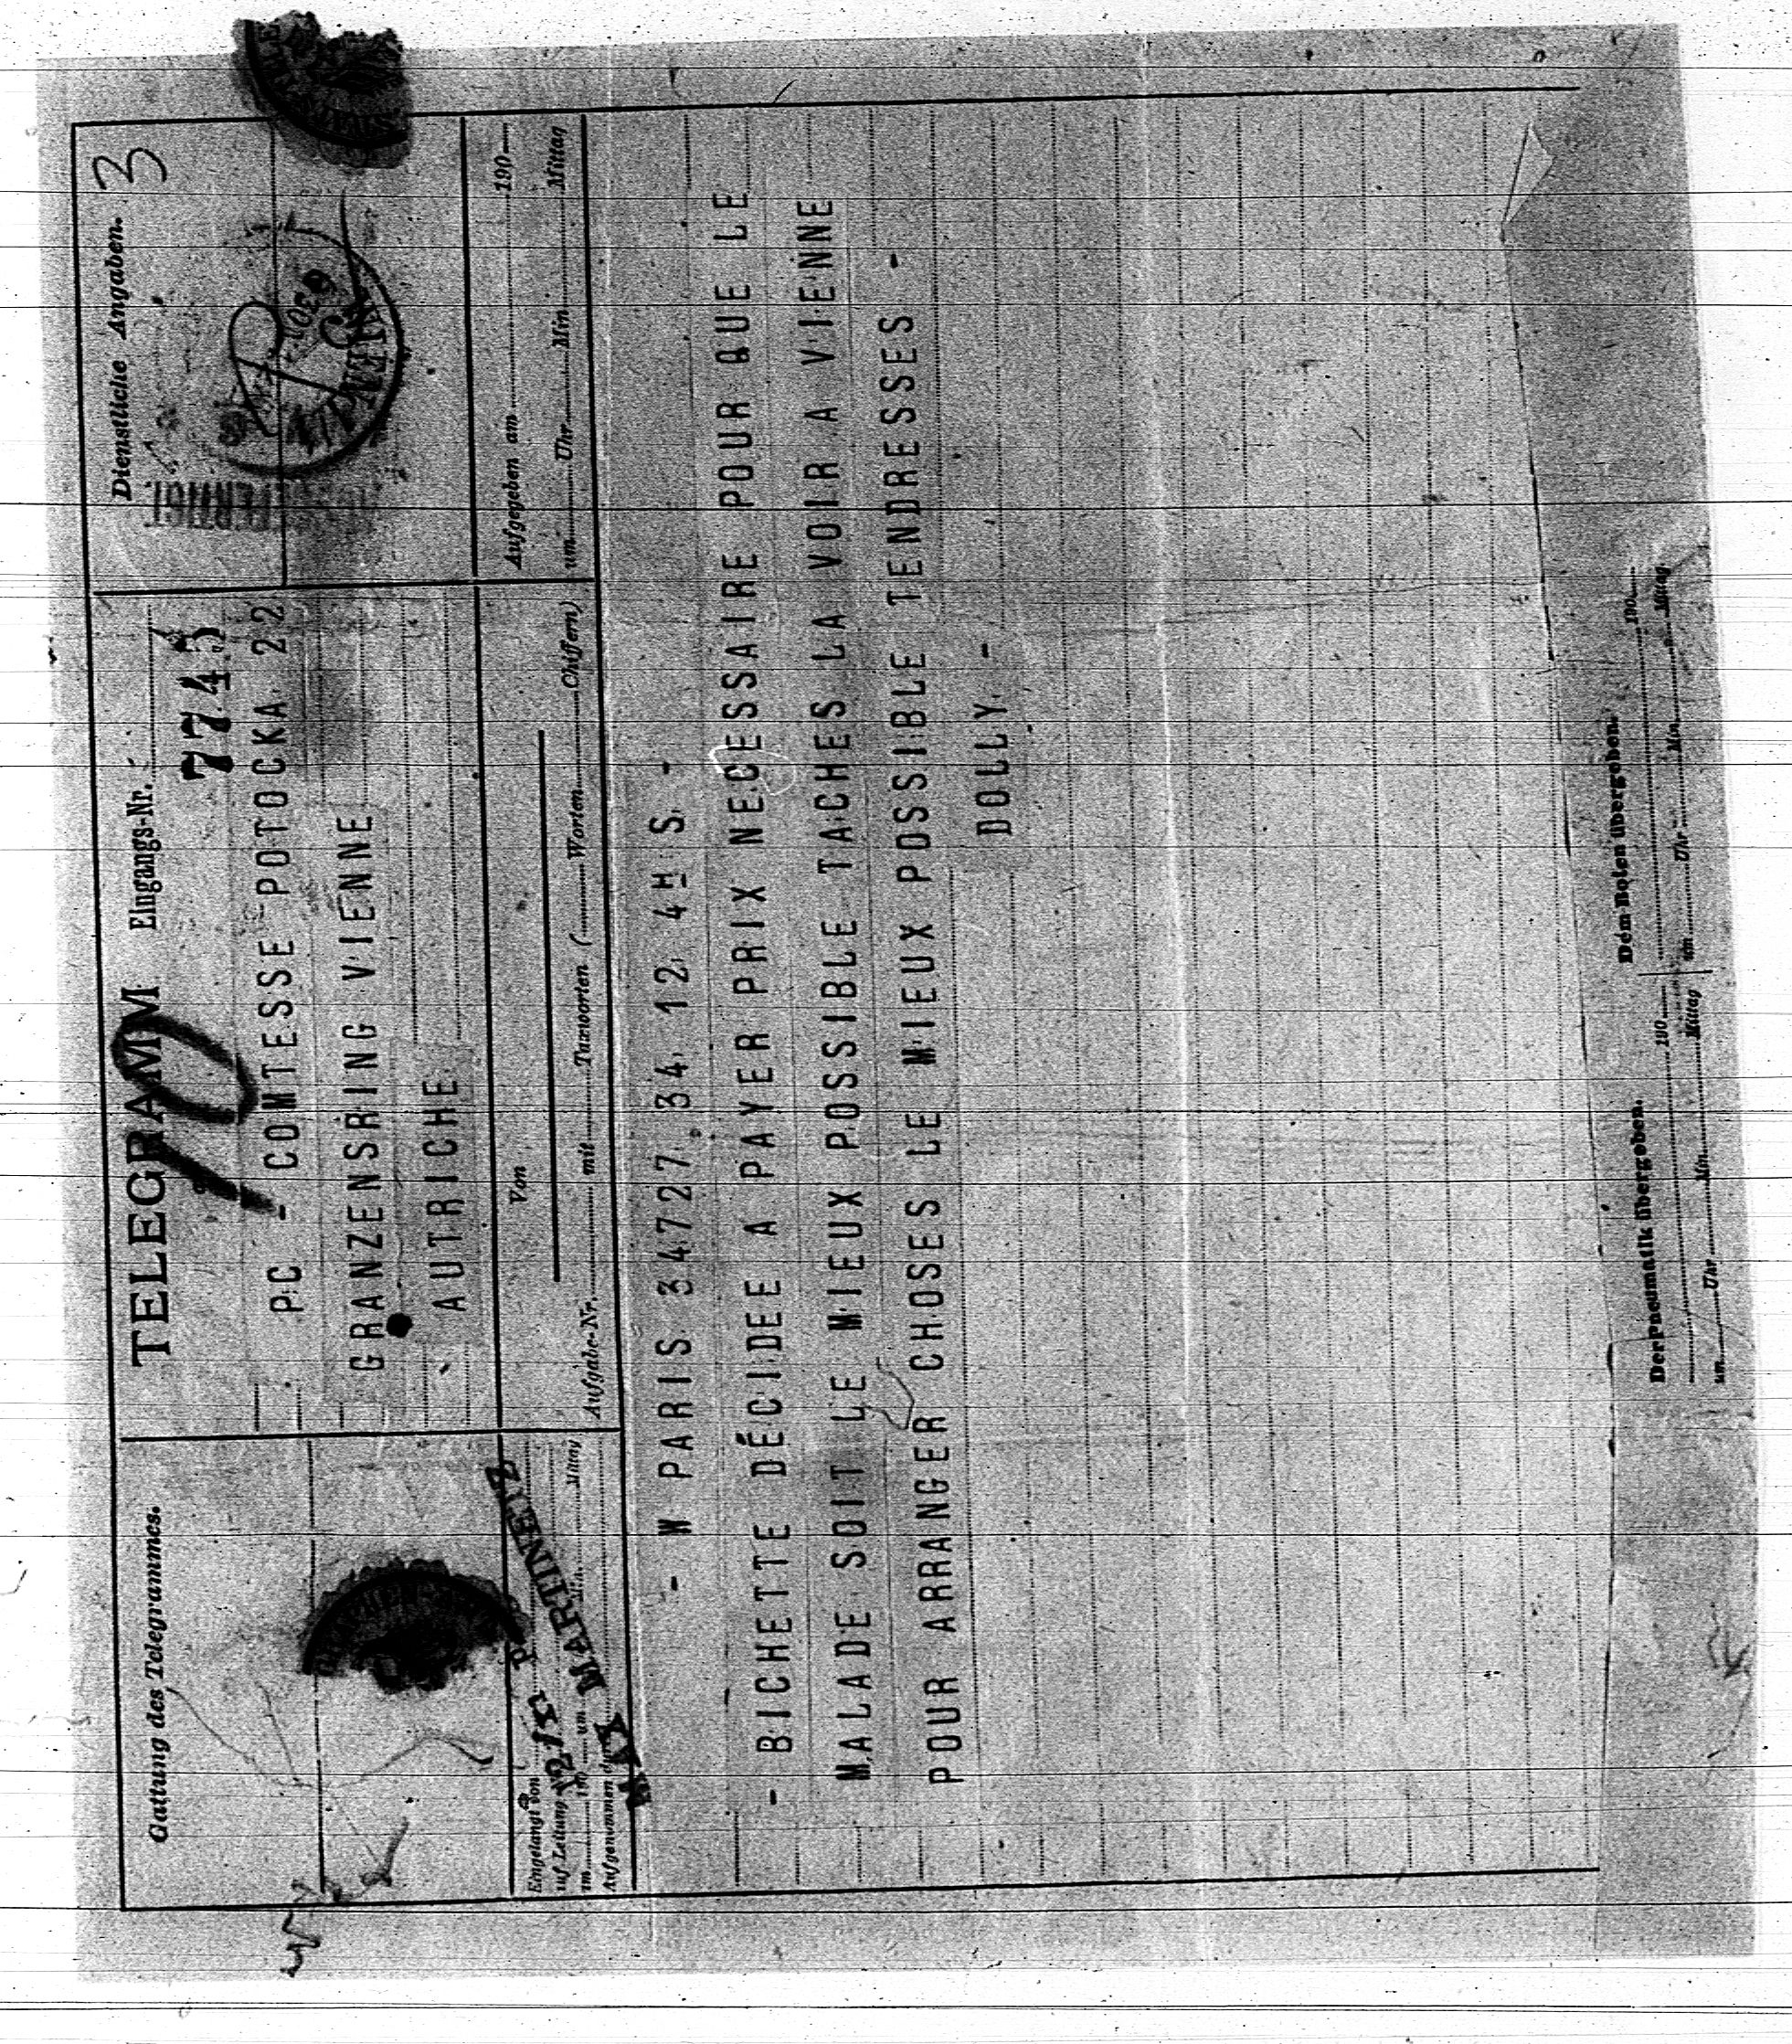 Gattung des Telegrammes.
TELEGRAMM Eingangs-Nr.
7745
10
PC - COMTESSE POTOCKA 22
GRANZENSRING VIENNE
AUTRICHE
Dienstliche Angaben.
3
WIEN
Eingelangt von
auf Leitung
12/XI
am 190 um Min. Mittag
Aufgenommen durch
MARTINETZ
MAX
Von
Aufgabe-Nr. mit Taxworten ( Worten Chiffern)
Aufgegeben am 190
um Uhr Min. Mittag
- W PARIS 34727 34 12 4H S -
- BICHETTE DÉCIDEE A PAYER PRIX NECESSAIRE POUR QUE LE
MALADE SOIT LE MIEUX POSSIBLE TACHES LA VOIR A VIENNE
POUR ARRANGER CHOSES LE MIEUX POSSIBLE TENDRESSES -
DOLLY -
Der Pneumatik übergeben.
190
um Uhr Min. Mittag
Dem Boten übergeben.
190
um Uhr Min. Mittag